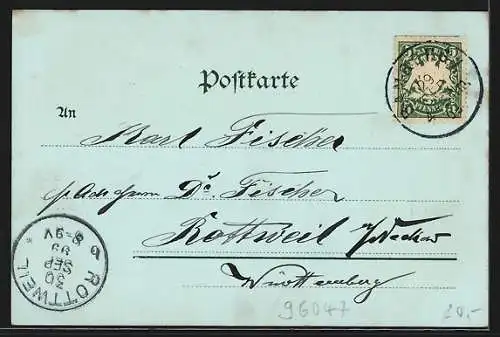 Postkarte
An
Karl Fischer
p. Adr. Herrn Dr. Fischer
Rottweil a/Neckar
Württemberg
ROTTWEIL
30
SEP
99
8-9V
96047
20,-